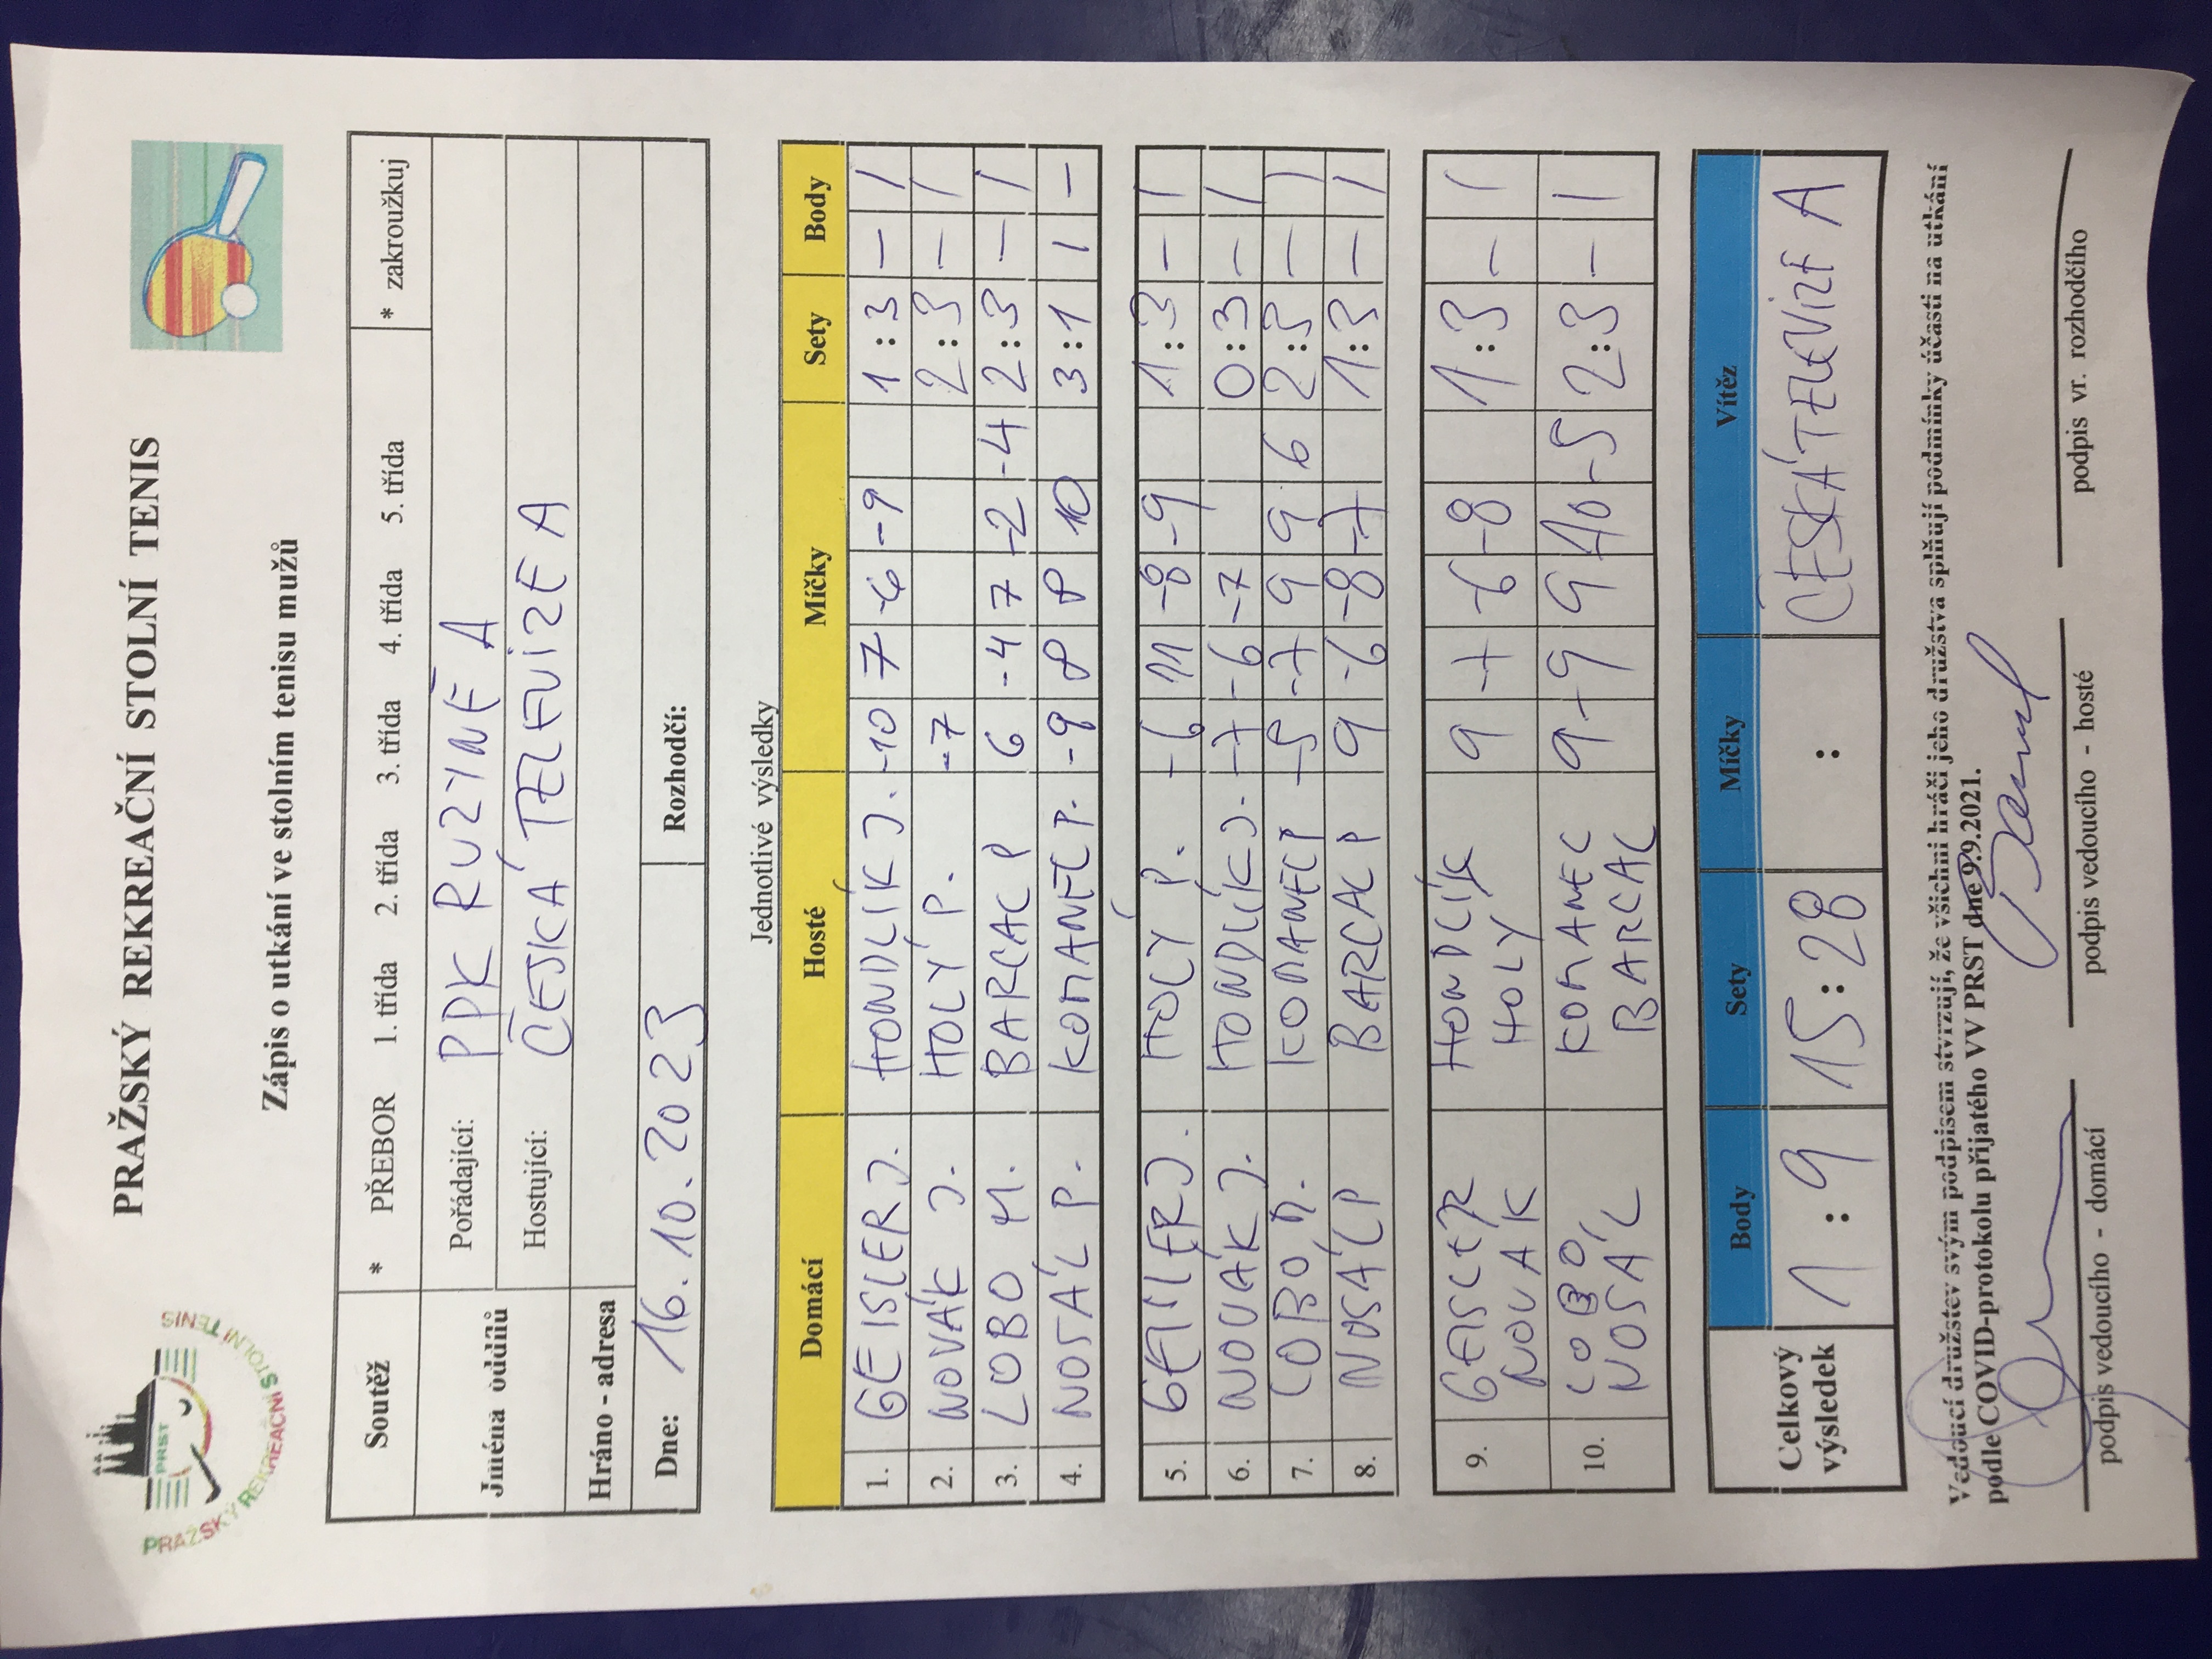 PRAŽSKÝ REKREAČNÍ STOLNÍ TENIS
PRST
PRAŽSKÝ REKREAČNÍ STOLNÍ TENIS
Zápis o utkání ve stolním tenisu mužů
Soutěž * PŘEBOR 1. třída 2. třída 3. třída 4. třída 5. třída * zakroužkuj
Jména oddílů Pořádající: PPK RUZYNĚ A
Hostující: ČESKÁ TELEVIZE A
Hráno - adresa
Dne: 16.10.2023 Rozhodčí:
Jednotlivé výsledky
Domácí Hosté Míčky Sety Body
1. GEISLER J. HONDLÍK J. -10 7 -6 -9 1:3 - 1
2. NOVÁK J. HOLÝ P. -7 2:3 - 1
3. LOBO M. BARCAL P 6 -4 7 -2 -4 2:3 - 1
4. NOSÁL P. KOMANEC P. -9 8 8 10 3:1 1 -
5. GEISLER J. HOLÝ P. -6 11 -8 -9 1:3 - 1
6. NOVÁK J. HONDLÍK J. -7 -6 -7 0:3 - 1
7. LOBO M. KOMANEC P -5 -7 9 9 6 2:3 - 1
8. NOSÁL P BARCAL P 9 -6 -8 -7 1:3 - 1
9. GEISLER HONDLÍK 9 -7 -6 -8 1:3 - 1
NOVAK HOLÝ
10. LOBO KOMANEC 9 -9 9 -10 -5 2:3 - 1
NOSÁL BARCAL
Celkový výsledek Body Sety Míčky Vítěz
1:9 15:28 : ČESKÁ TELEVIZE A
Vedoucí družstev svým podpisem stvrzují, že všichni hráči jeho družstva splňují podmínky účasti na utkání
podle COVID-protokolu přijatého VV PRST dne 9.9.2021.
podpis vedoucího - domácí podpis vedoucího - hosté podpis vr. rozhodčího